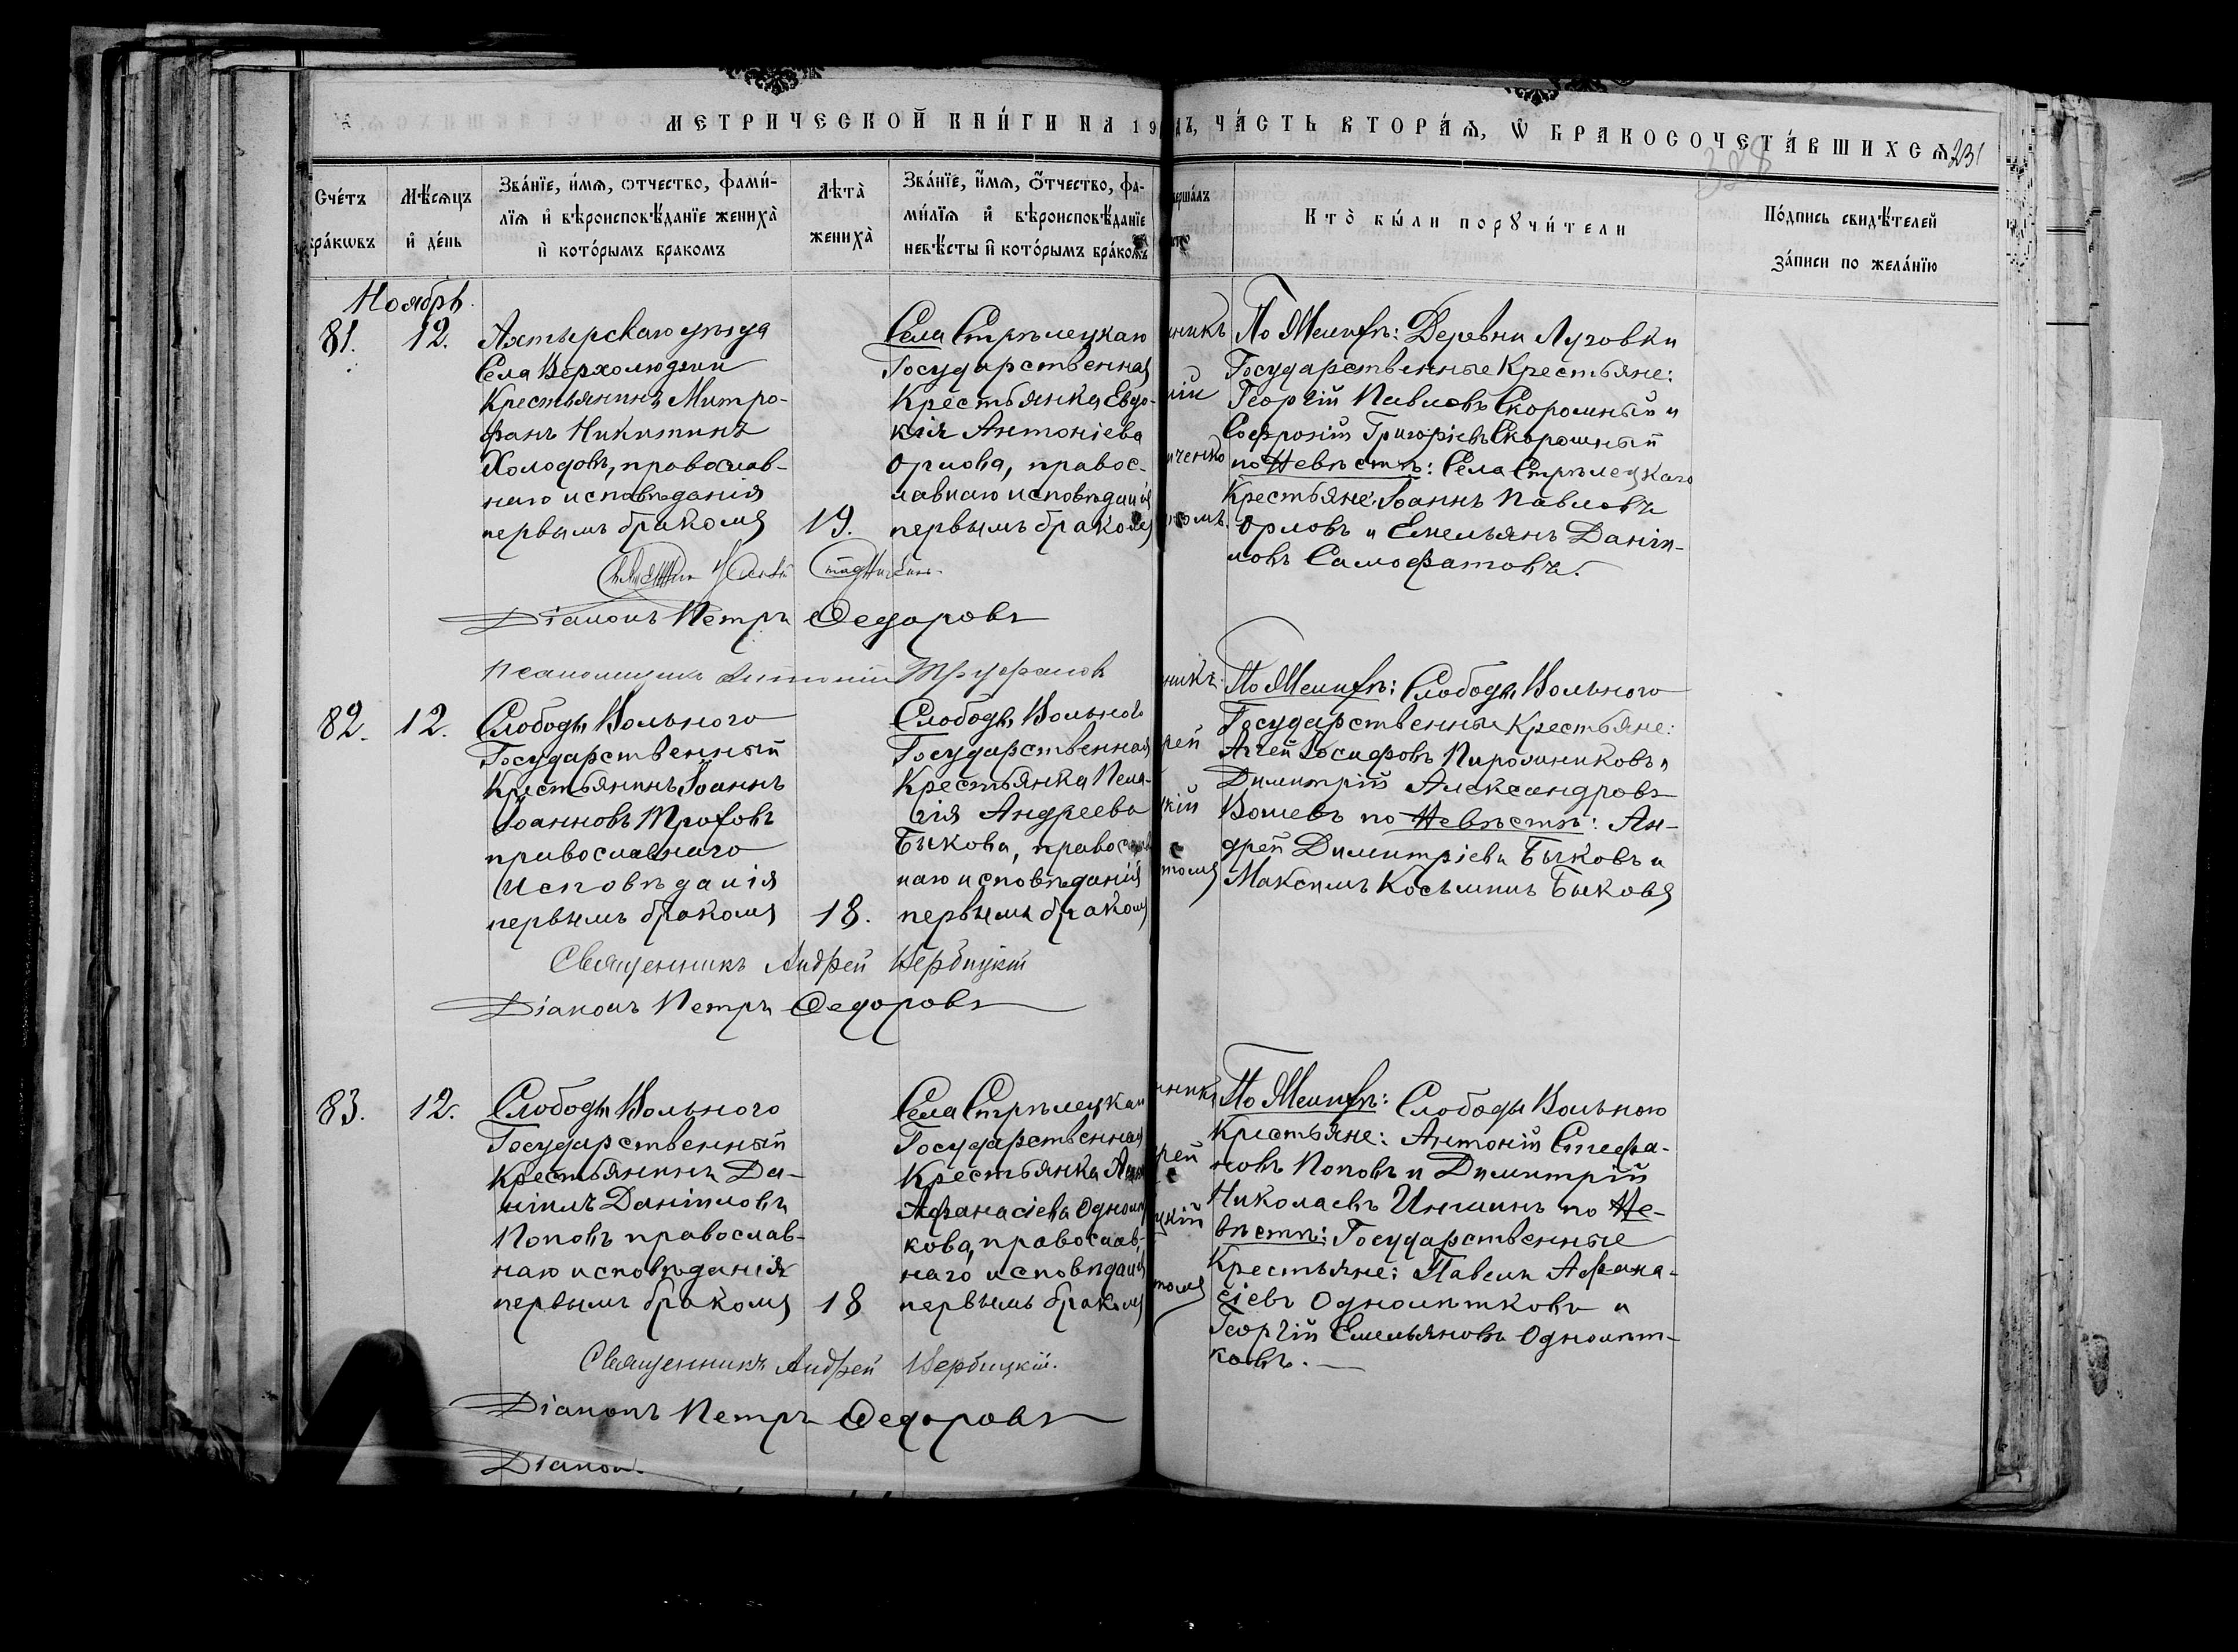 МЕТРИЧЕСКОЙ КНИ́ГИ НА 19
ДЪ, ЧА́СТЬ ВТОРА́Ѧ, Ѿ БРАКОСОЧЕТА́ВШИХСѦ 231
Сче́тъ
бра́кѡвъ
Мѣ́сѧцъ
и҆ де́нь
Зва́нїе, и҆́мѧ, ѻтчество, фами́-
лїѧ и҆ вѣроисповѣ́данїе жениха̀
и҆ кото́рымъ бракомъ
Лѣта̀
жениха̀
Зва́нїе, и҆́мѧ, ѻ҆́тчество, фа-
ми́лїѧ и҆ вѣроисповѣ́данїе
невѣ́сты и҆ кото́рымъ бра́комъ
вершалъ
Кто̀ бы́ли порꙋчи́тели
По́дпись свидѣ́телей
за́писи по жела́нїю
Ноябрь
81. 12.
Ахтырскаго уѣзда
Села Верхолюдки
Крестьянинъ Митро-
фанъ Никитинъ
Холодовъ, православ-
наго исповѣданія
первымъ бракомъ
19.
Села Стрѣлецкаго
Государственная
Крестьянка Евдо-
кія Антоніева
Орлова, правос-
лавнаго исповѣданія
первымъ бракомъ
По Женихѣ: Деревни Луговки
Государственные Крестьяне:
Георгій Павловъ Скоромный и
Софроній Григоріевъ Скоромный
по Невѣстѣ: Села Стрѣлецкаго
Крестьяне: Іоаннъ Павловъ
Орловъ и Емельянъ Даніи-
ловъ Самофатовъ.
Діаконъ Петръ Федоровъ
Псаломщикъ Антоній Труфанов
82. 12.
Слободы Вольного
Государственный
Крестьянинъ Іоаннъ
Іоанновъ Трофовъ
православнаго
исповѣданія
первымъ бракомъ
18.
Слободы Вольного
Государственная
Крестьянка Пела-
гія Андреева
Быкова, правос
наго исповѣданія
первымъ бракомъ
По Женихѣ: Слободы Вольного
Государственные Крестьяне:
Агей Іосифовъ Пирожниковъ и
Димитрій Александровъ
по Невѣстѣ: Ан-
дрей Димитріевъ Быковъ и
Максимъ Косьминъ Быковъ
Священникъ Андрей Вербицкій
Діаконъ Петръ Федоровъ
83. 12.
Слободы Вольного
Государственный
Крестьянинъ Да-
ніилъ Даніиловъ
Поповъ православ-
наго исповѣданія
первымъ бракомъ
18
Села Стрѣлецкаго
Государственная
Крестьянка
Афанасіева Однолѣт
кова, православ-
наго исповѣданія
первымъ бракомъ
По Женихѣ: Слободы Вольного
Крестьяне: Антоній Стефа-
новъ Поповъ и Димитрій
Николаевъ Иншинъ по Не-
вѣстѣ: Государственные
Крестьяне: Павелъ Афана-
сіевъ Однолѣтковъ и
Георгій Емельяновъ Однолѣт-
ковъ.
Священникъ Андрей Вербицкій.
Діаконъ Петръ Федоровъ
Діакон.